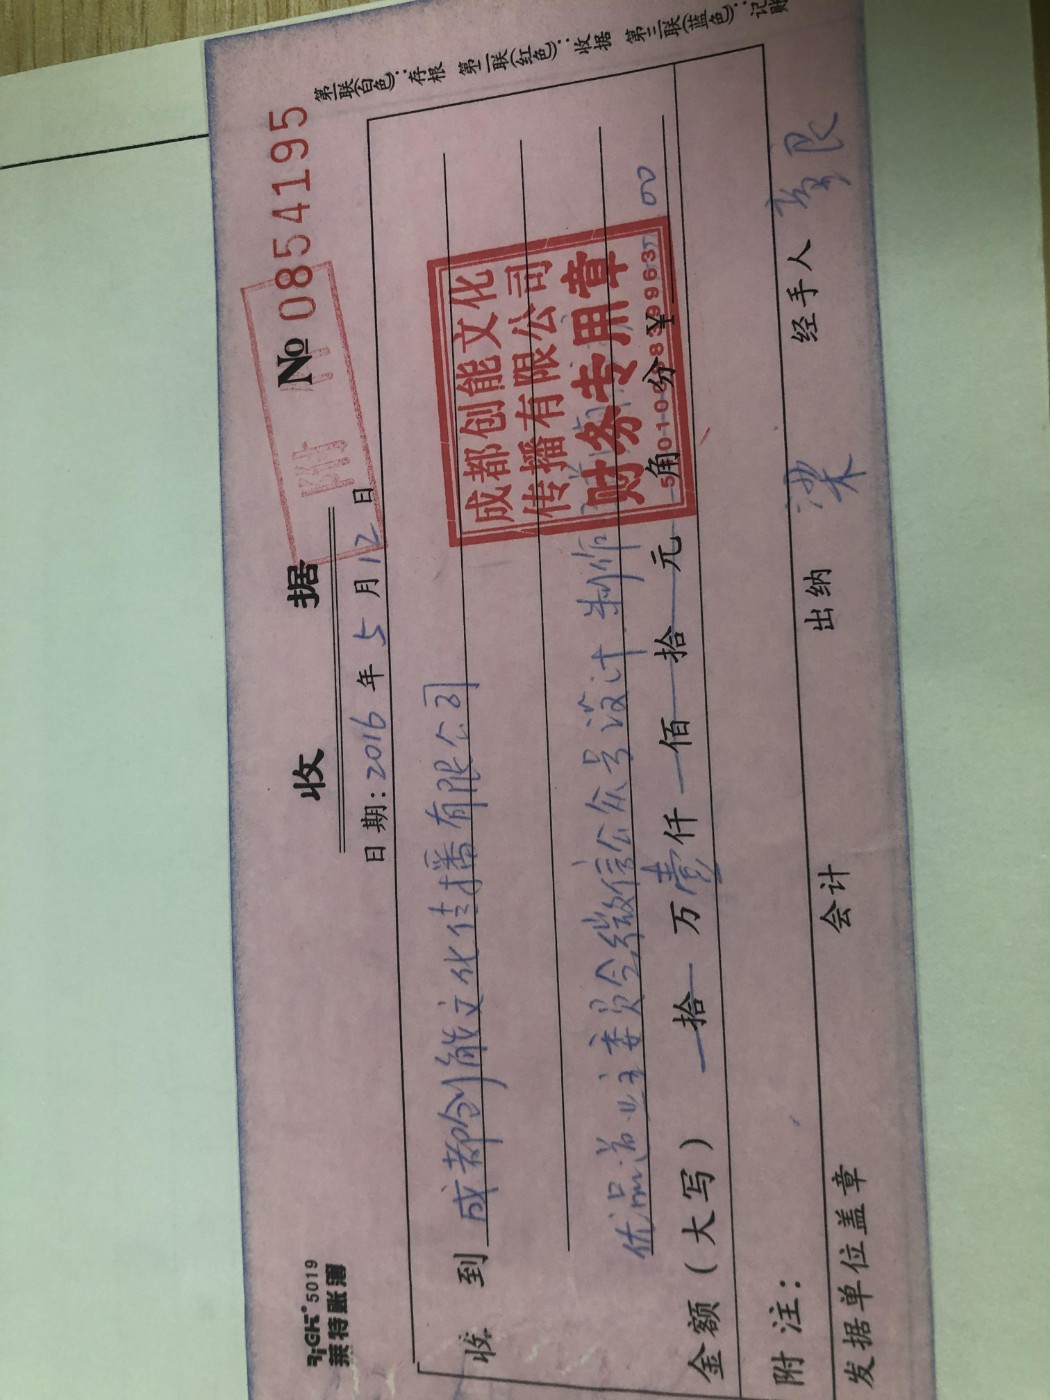 RiGHt® 5019
莱特账簿
收 据
附 件
№ 0854195
日期: 2016 年 5 月 12 日
收 到 成都创能文化传播有限公司
优品道业主委员会微信公众号设计、制作
成都创能文化
传播有限公司
财务专用章
金额(大写) 拾 万 壹 仟 佰 拾 元 角 分 ¥ 00
附 注:
发据单位盖章 会计 出纳 梁 经手人
第一联(白色):存根 第二联(红色):收据 第三联(蓝色):记账